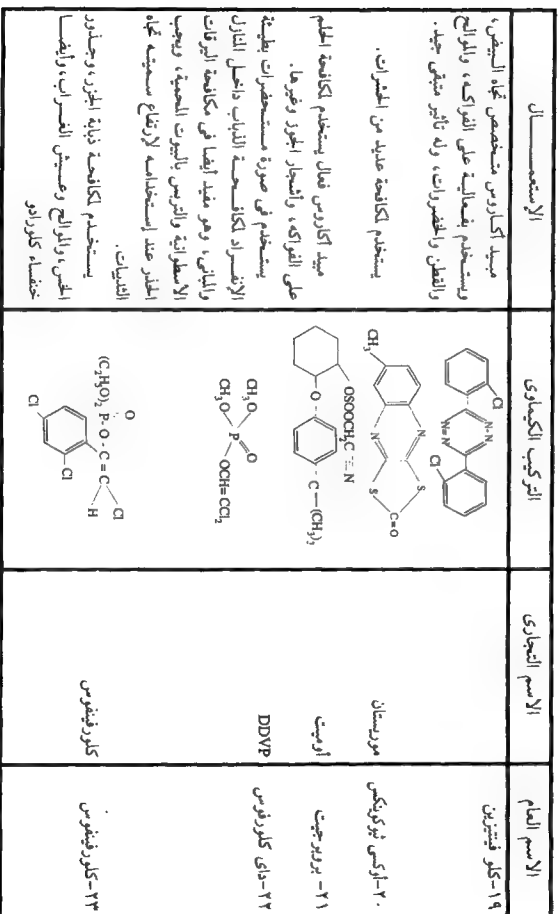 الاسم العام
الاسم التجارى
التركيب الكيماوى
الإستعمـــــال
١٩-كلو فينتيزين
Cl
N-N
N=N
Cl
مبيد أكـاروس متخصص تجاه البيض،
ويستخدم بفعالية على الفواكه، والموالح
والقطن والخضروات، وله تأثير متبقى جيد.
٢٠-أوكسى ثيوكوينكس
موريستان
CH3
N
N
S
S
C=O
يستخدم لمكافحة عديد من الحشرات.
٢١-بروبرجيت
أوميت
OSOOCH2C≡N
O
C—(CH3)3
مبيد أكاروس فعال يستخدم لمكافحة الحلم
على الفواكه، وأشجار الجوز وغيرها.
٢٢-داى كلورفوس
DDVP
CH3O
CH3O
P
O
OCH=CCl2
يستخدم فى صورة مستحضرات بطيئة
الإنفـــراد لمكافـــحــة الذباب داخـل المنازل
والمبانى، وهو مفيد أيضا فى مكافحة اليرقات
الاسطوانية والتربس بالبيوت المحمية، ويجب
الحذر عند إستخدامه لإرتفاع سميته تجاه
الثدييات.
٢٣-كلورفينفوس
كلورفينفوس
O
(C2H5O)2 P-O-C=C
Cl
H
Cl
Cl
يستخدم لمكافحة ذبابة الجزر، وجـذور
الخس، والموالح وعـيش الغـراب، وأيضـا
خنفساء كلورادو